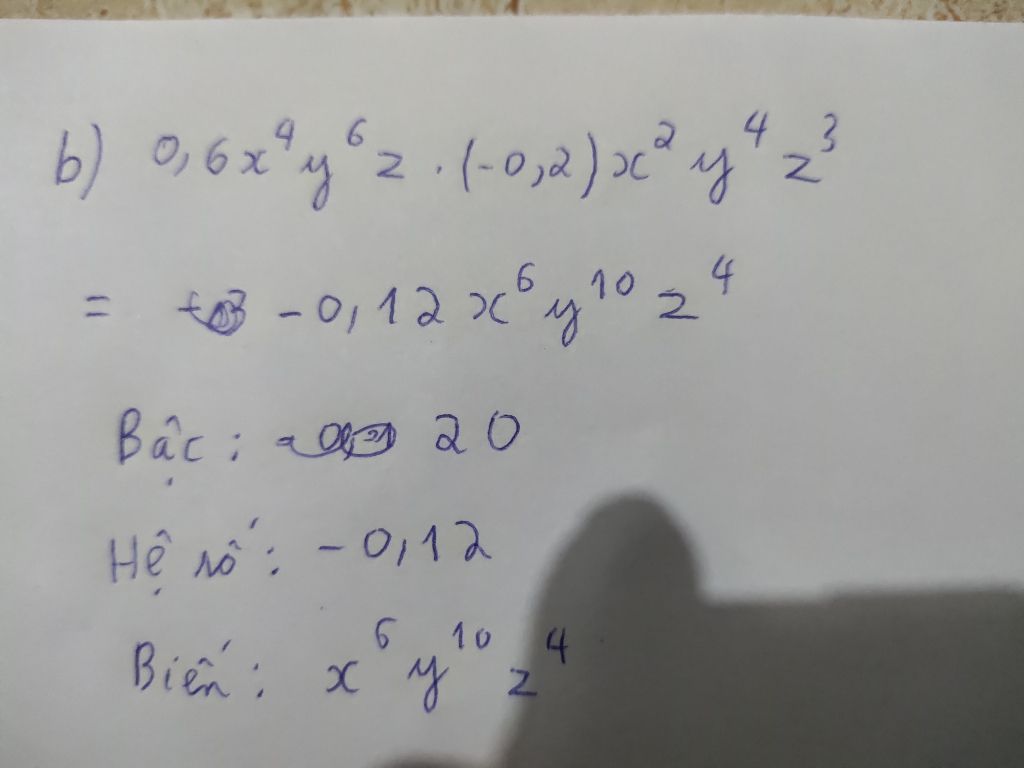 b) 0,6x⁴y⁶z . (-0,2)x²y⁴z³
= -0,12x⁶y¹⁰z⁴
Bậc: 20
Hệ số: -0,12
Biến: x⁶y¹⁰z⁴